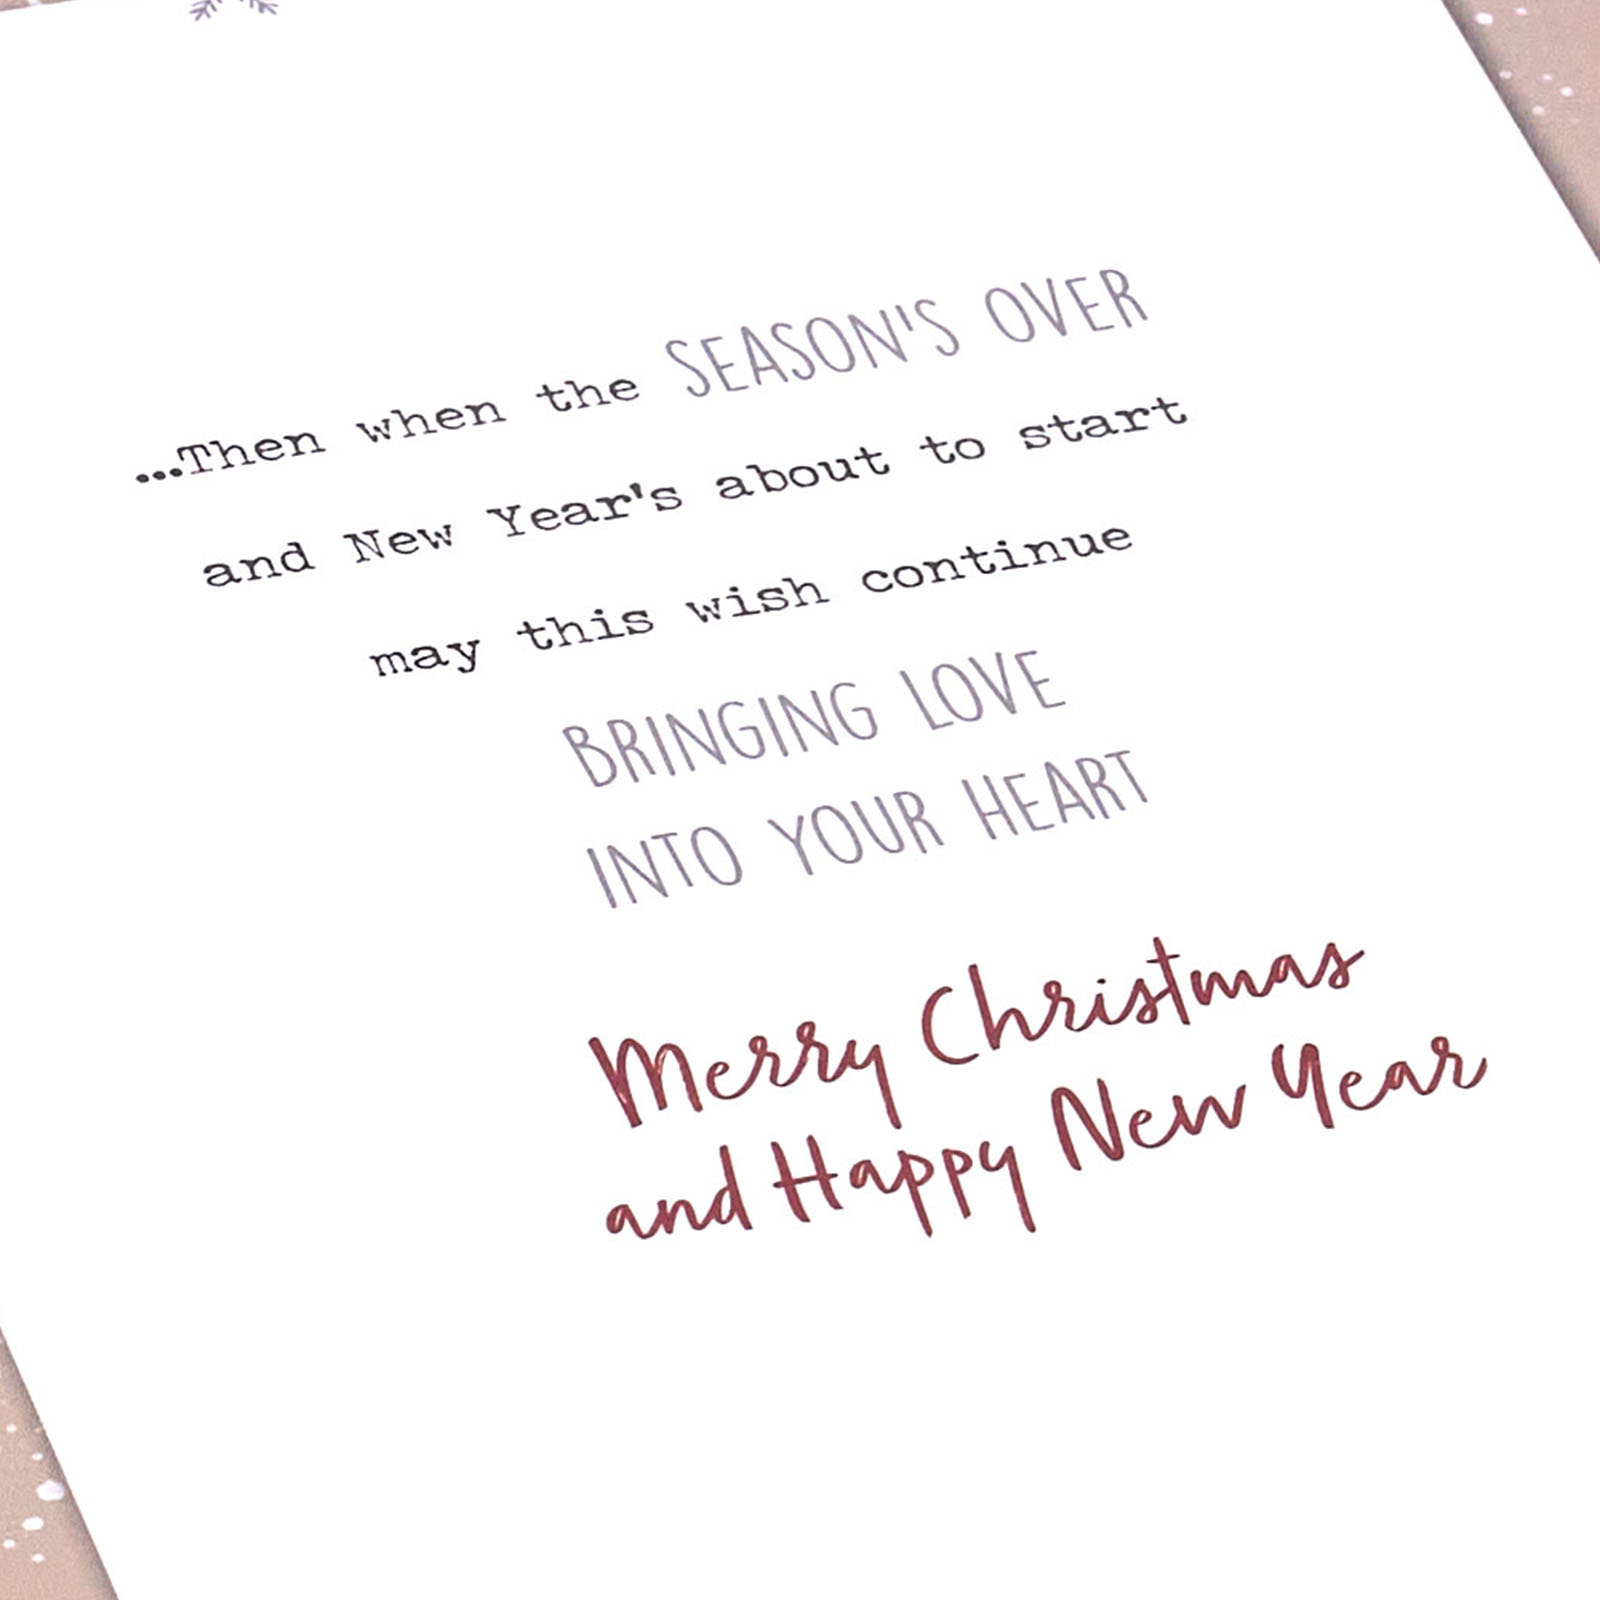 ...Then when the SEASON'S OVER
and New Year's about to start
may this wish continue
BRINGING LOVE
INTO YOUR HEART
Merry Christmas
and Happy New Year